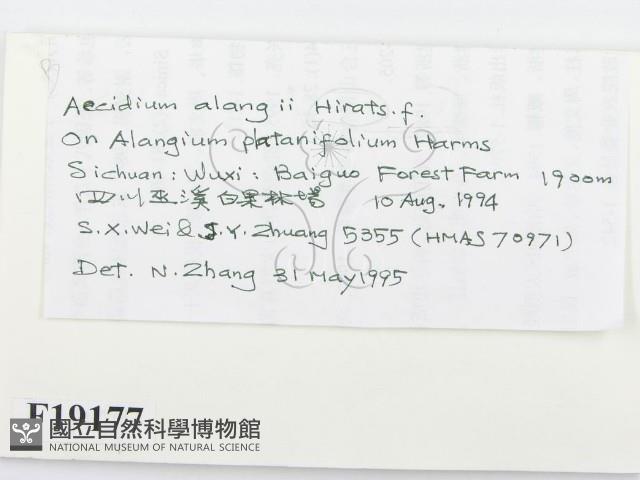 Aecidium alangii Hirats.f.
On Alangium platanifolium Harms
Sichuan: Wuxi: Baiguo Forest Farm 1900m
四川巫溪白果林場 10 Aug. 1994
S.X.Wei & J.Y.Zhuang 5355 (HMAS 70971)
Det. N.Zhang 31 May 1995
F19177
國立自然科學博物館
NATIONAL MUSEUM OF NATURAL SCIENCE